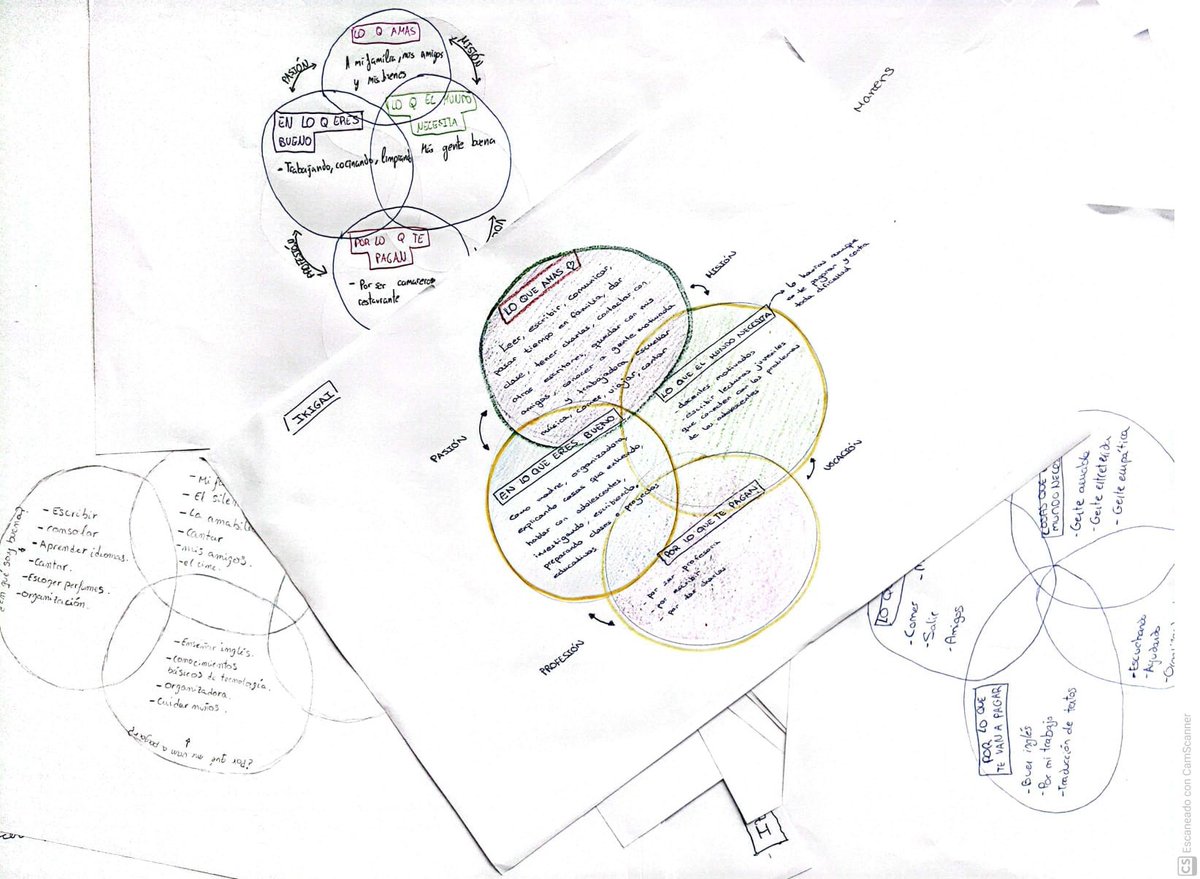 LO Q AMAS
A mi familia, mis amigos
y mis bienes
PASIÓN
MISIÓN
EN LO Q ERES
BUENO
- Trabajando, cocinando, limpiando
LO Q EL MUNDO
NECESITA
Más gente buena
PROFESIÓN
POR LO Q TE
PAGAN
- Por ser camarero
restaurante
IKIGAI
LO QUE AMAS
Leer, escribir, comunicar,
pasar tiempo en familia, dar
clase, tener charlas, contactar con
otros escritores, quedar con mis
amigos, conocer a gente motivada
y trabajadora, escuchar
música, comer, viajar, cantar
MISIÓN
Lo harías aunque
no te pagaran y conta
toda dificultad
LO QUE EL MUNDO NECESITA
docentes motivados
escribir lecturas juveniles
que conecten con los problemas
de los adolescentes
PASIÓN
EN LO QUE ERES BUENO
como madre, organizadora,
explicando cosas que entiendo,
hablar con adolescentes,
investigando, escribiendo,
preparando clases, proyectos
educativos
VOCACIÓN
POR LO QUE TE PAGAN
- por ser profesora
- por escribir
- por dar charlas
PROFESIÓN
en qué soy buena?
- Escribir
- consolar
- Aprender idiomas.
- Cantar.
- Escoger perfumes.
- Organización.
- Mi f
- El silen
- La amabil
- Cantar
- mis amigos.
- el cine.
- Enseñar inglés.
- Conocimientos
básicos de tecnología.
- Organizadora.
- Cuidar niños.
¿Por qué me van a pagar?
COSAS QUE
MUNDO NECES
- Gente amable
- Gente entretenida
- Gente empática
LO Q
- Comer
- Salir
- Amigos
- Escuchando
- Ayudando
- Organi
POR LO QUE
TE VAN A PAGAR
- Buen inglés
- Por mi trabajo
- Traducción de textos
I
CS Escaneado con CamScanner